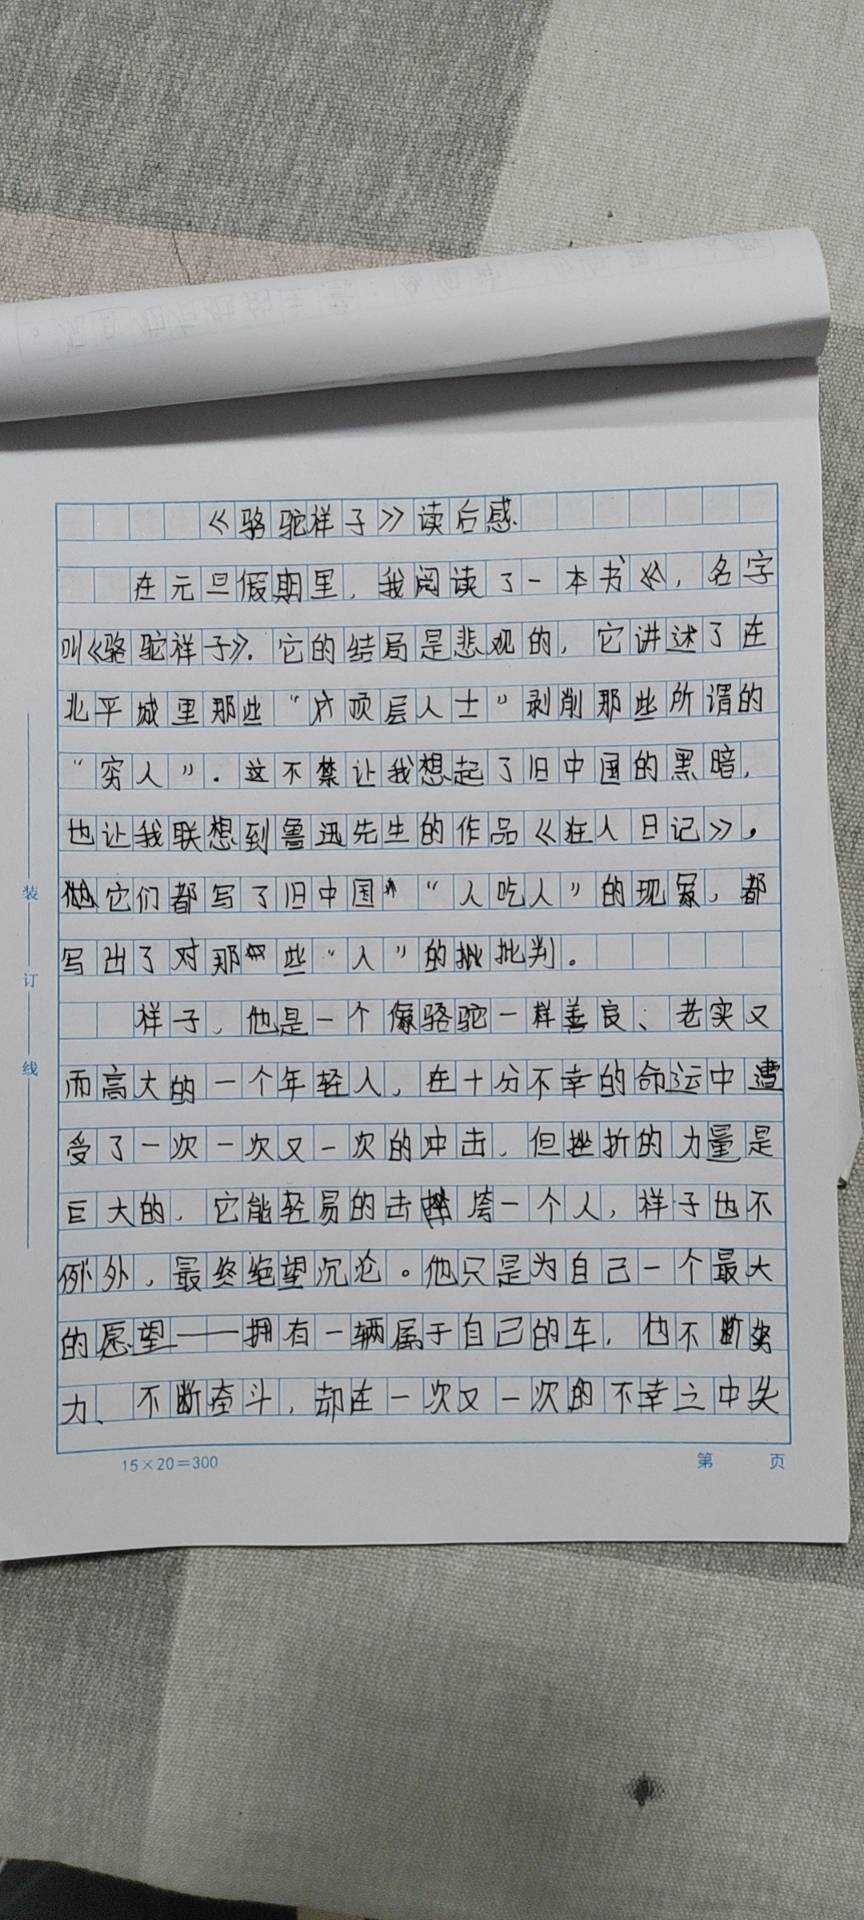 《骆驼祥子》读后感
在元旦假期里，我阅读了一本书，名字
叫《骆驼祥子》。它的结局是悲观的，它讲述了在
北平城里那些“顶层人士”剥削那些所谓的
“穷人”。这不禁让我想起了旧中国的黑暗，
也让我联想到鲁迅先生的作品《狂人日记》，
它们都写了旧中国“人吃人”的现象，都
写出了对那些“人”的批判。
祥子，他是一个像骆驼一样善良、老实又
而高大的一个年轻人，在十分不幸的命运中遭
受了一次一次又一次的冲击，但挫折的力量是
巨大的，它能轻易的击垮一个人，祥子也不
例外，最终绝望沉沦。他只是为自己一个最大
的愿望——拥有一辆属于自己的车，他不断努
力、不断奋斗，却在一次又一次的不幸之中失
装
订
线
15×20=300
第 页